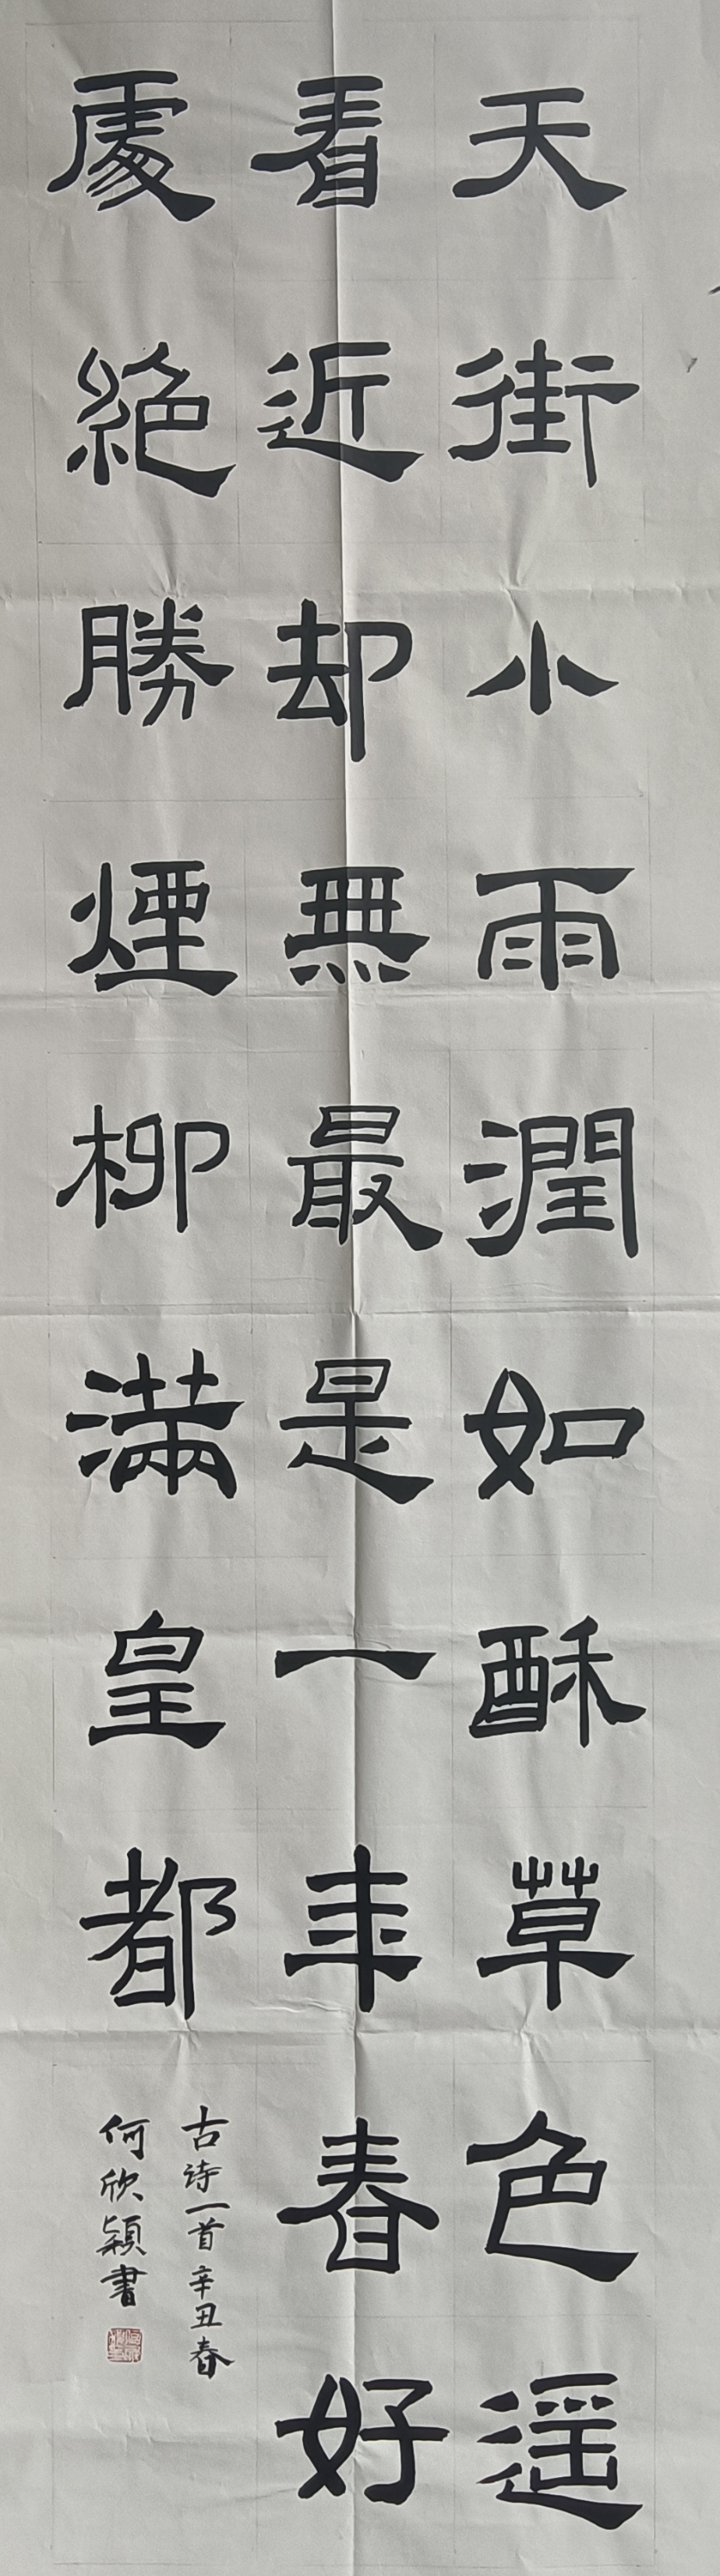 天街小雨潤如酥草色遥
看近却無最是一年春好
處絕勝煙柳滿皇都
古詩一首辛丑春
何欣穎書